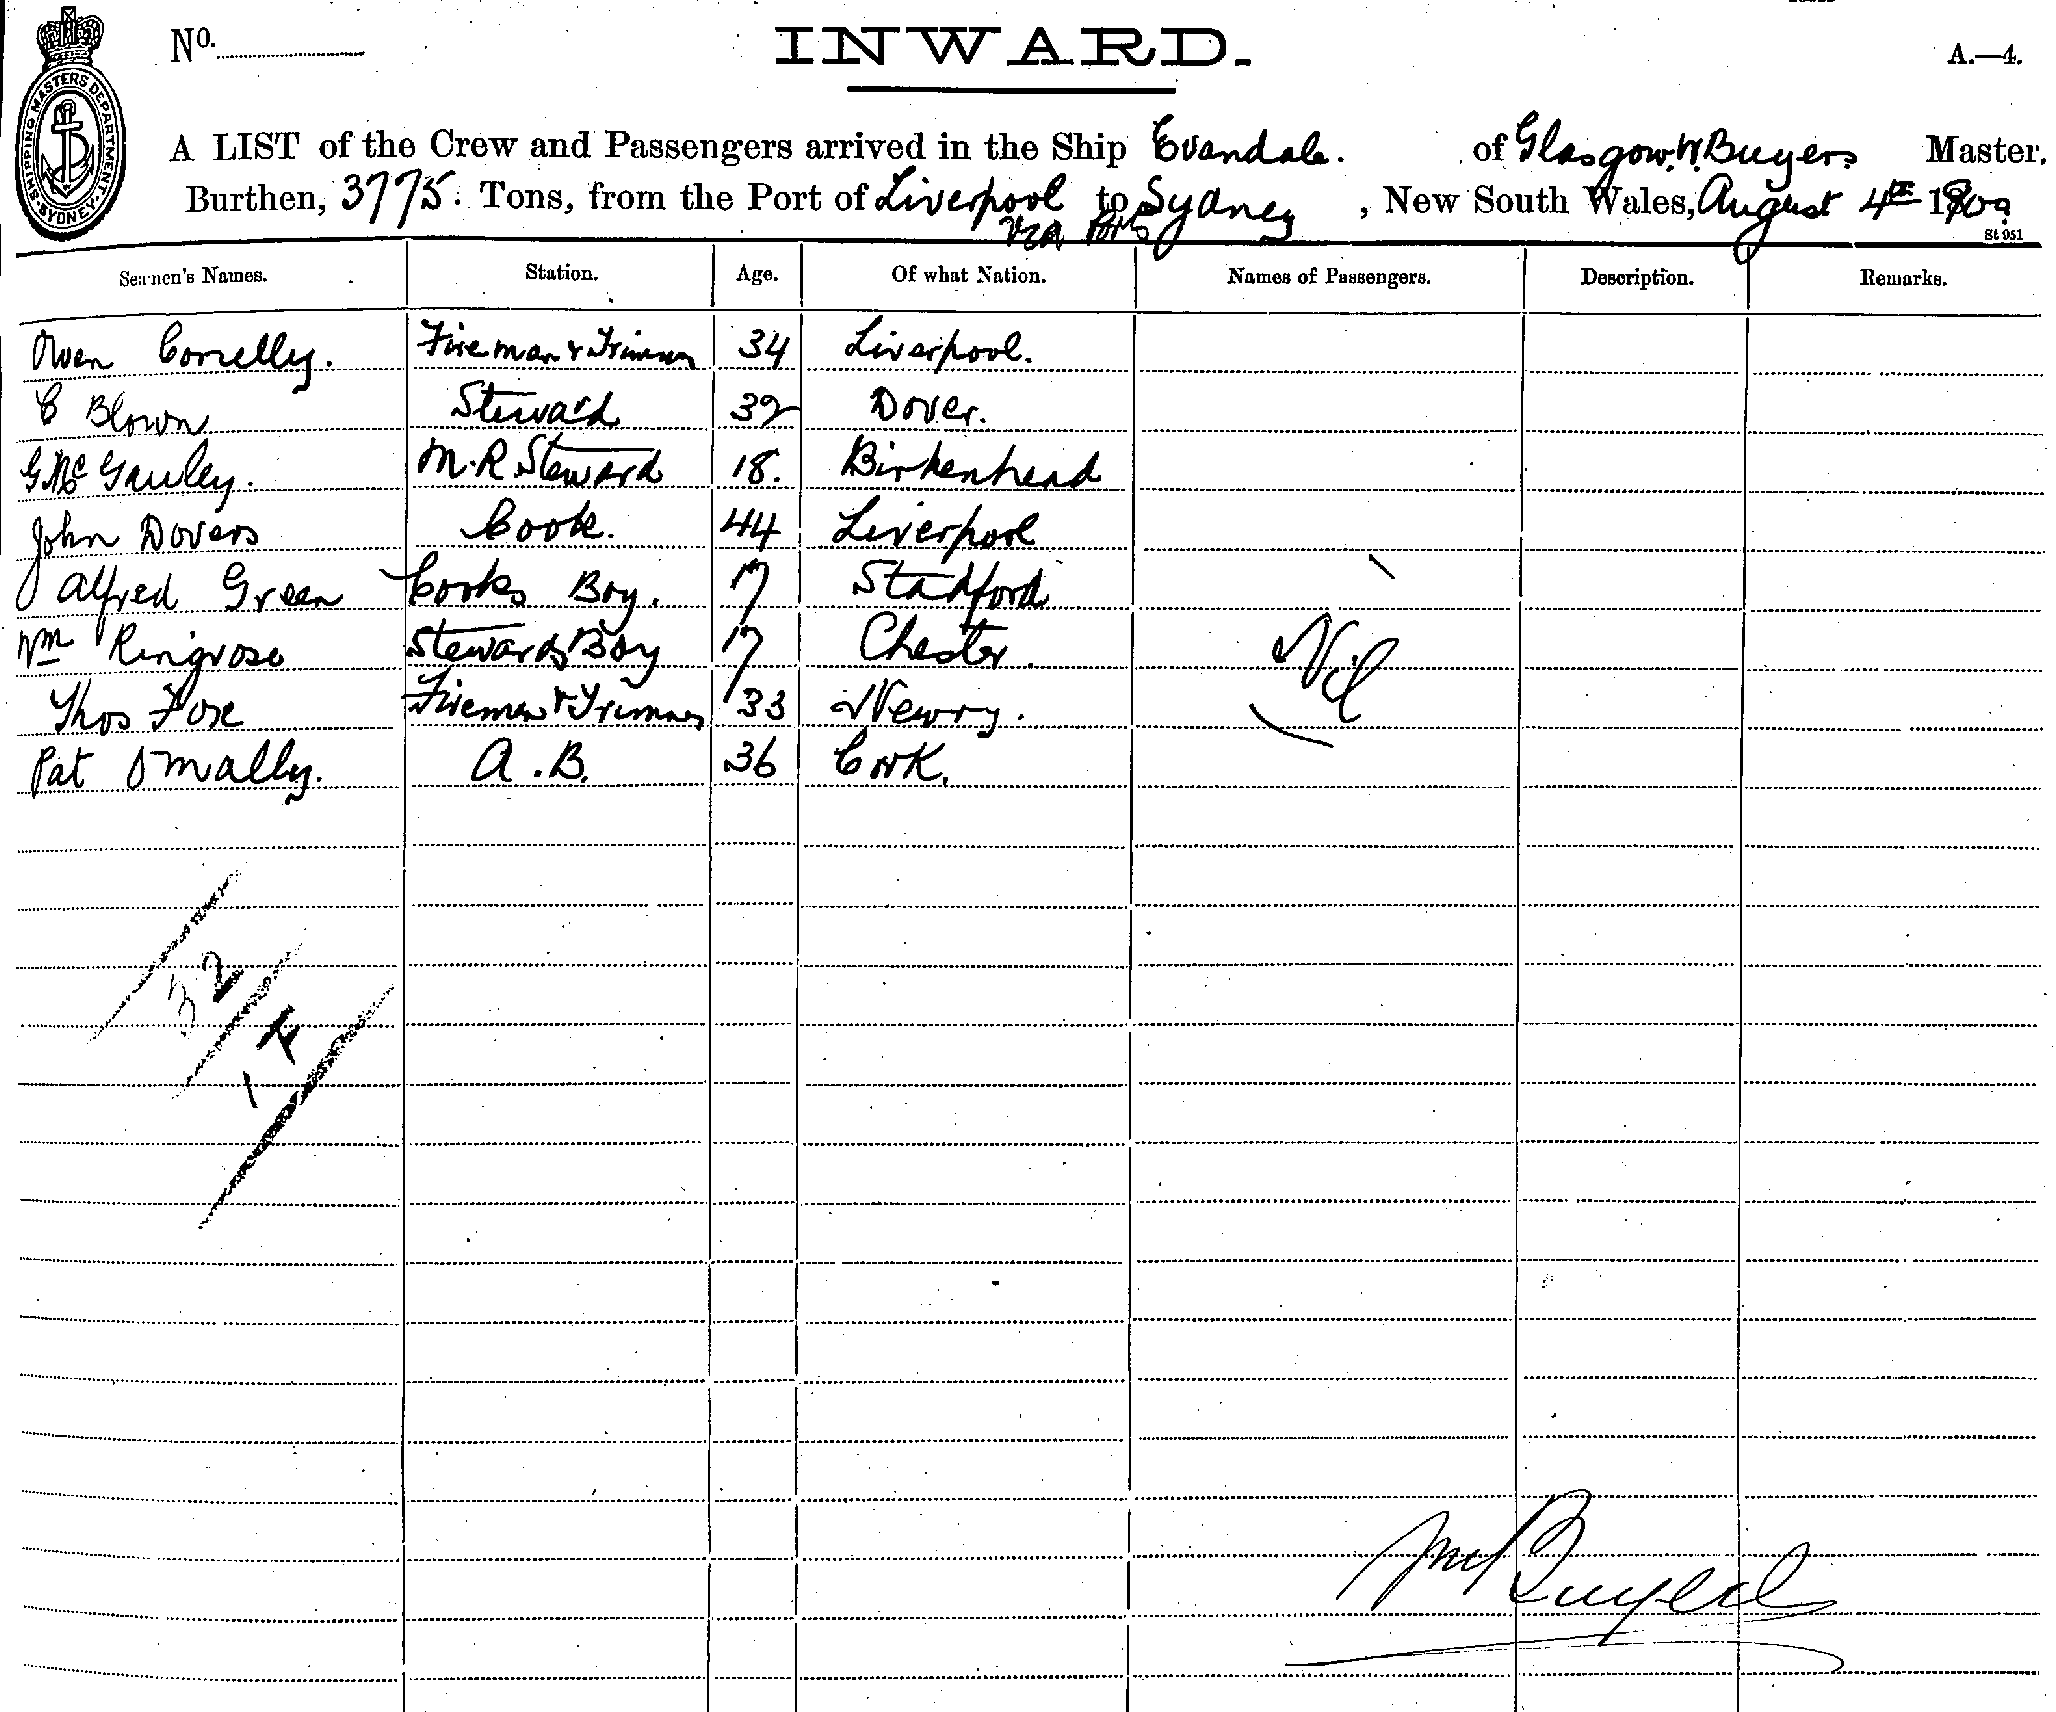 No. INWARD. A.—4.
SHIPPING MASTERS DEPARTMENT SYDNEY
A LIST of the Crew and Passengers arrived in the Ship Evandale. of Glasgow. W. Buyers Master.
Burthen, 3775. Tons, from the Port of Liverpool to Sydney, New South Wales, August 4th 1909
via Ports
St 951
Seamen's Names. Station. Age. Of what Nation. Names of Passengers. Description. Remarks.
Owen Connelly. Fireman & Trimmer 34 Liverpool.
C Blown Steward 39 Dover.
G Mc Gauley. M.R. Steward 18. Birkenhead
John Dovers Cook. 44 Liverpool
Alfred Green Cooks Boy. 17 Stadford
Wm Ringrose Stewards Boy 17 Chester. Nil
Thos Fox Fireman & Trimmer 33 Newry.
Pat O'Mally. A.B. 36 Cork.
32
14
Buyers